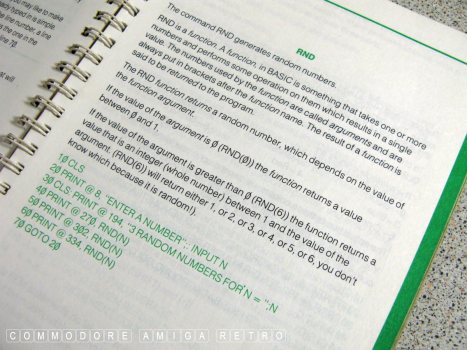 you may like to make
already typed in a simple
the line number, a line
the one in the
line 70.
that will
The command RND generates random numbers.
RND
RND is a function. A function, in BASIC is something that takes one or more
numbers and performs some operation on them which results in a single
value. The numbers used by the function are called arguments and are
always put in brackets after the function name. The result of a function is
said to be returned to the program.
The RND function returns a random number, which depends on the value of
the function argument.
If the value of the argument is 0 (RND(0)) the function returns a value
between 0 and 1.
If the value of the argument is greater than 0 (RND(6)) the function returns a
value that is an integer (whole number) between 1 and the value of the
argument. (RND(6)) will return either 1, or 2, or 3, or 4, or 5, or 6, you don't
know which because it is random!).
10 CLS
20 PRINT @ 8, "ENTER A NUMBER";: INPUT N
30 CLS: PRINT @ 194, "3 RANDOM NUMBERS FOR N = ";N
40 PRINT @ 270, RND(N)
50 PRINT @ 302, RND(N)
60 PRINT @ 334, RND(N)
70 GOTO 20
COMMODORE AMIGA RETRO